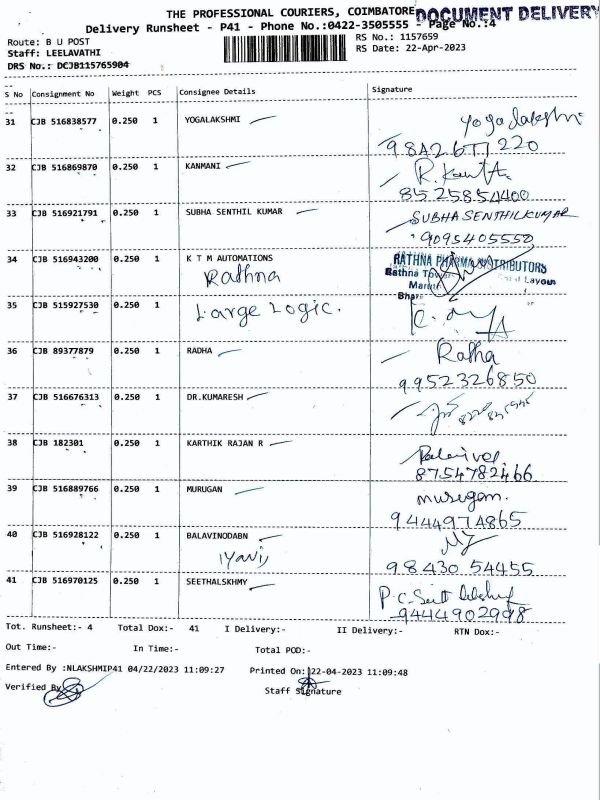 THE PROFESSIONAL COURIERS, COIMBATORE DOCUMENT DELIVERY
Delivery Runsheet - P41 - Phone No.:0422-3505555 - Page No.:4
Route: B U POST RS No.: 1157659
Staff: LEELAVATHI RS Date: 22-Apr-2023
DRS No.: DCJB115765904
S No Consignment No Weight PCS Consignee Details Signature
31 CJB 516838577 0.250 1 YOGALAKSHMI Yogalakshmi
32 CJB 516869870 0.250 1 KANMANI
8525854400
33 CJB 516921791 0.250 1 SUBHA SENTHIL KUMAR SUBHA SENTHILKUMAR
9095405550
34 CJB 516943200 0.250 1 K T M AUTOMATIONS RATHNA PHARMA DISTRIBUTORS
Rathna Rathna Layout
35 CJB 515927530 0.250 1 Large Logic.
36 CJB 89377879 0.250 1 RADHA Radha
9952326850
37 CJB 516676313 0.250 1 DR.KUMARESH
38 CJB 182301 0.250 1 KARTHIK RAJAN R Palanivel
8754782466
39 CJB 516889766 0.250 1 MURUGAN murugan.
9444974865
40 CJB 516928122 0.250 1 BALAVINODABN
98430 54455
41 CJB 516970125 0.250 1 SEETHALSKHMY
9444902998
Tot. Runsheet:- 4 Total Dox:- 41 I Delivery:- II Delivery:- RTN Dox:-
Out Time:- In Time:- Total POD:-
Entered By :NLAKSHMIP41 04/22/2023 11:09:27 Printed On: 22-04-2023 11:09:48
Verified By Staff Signature